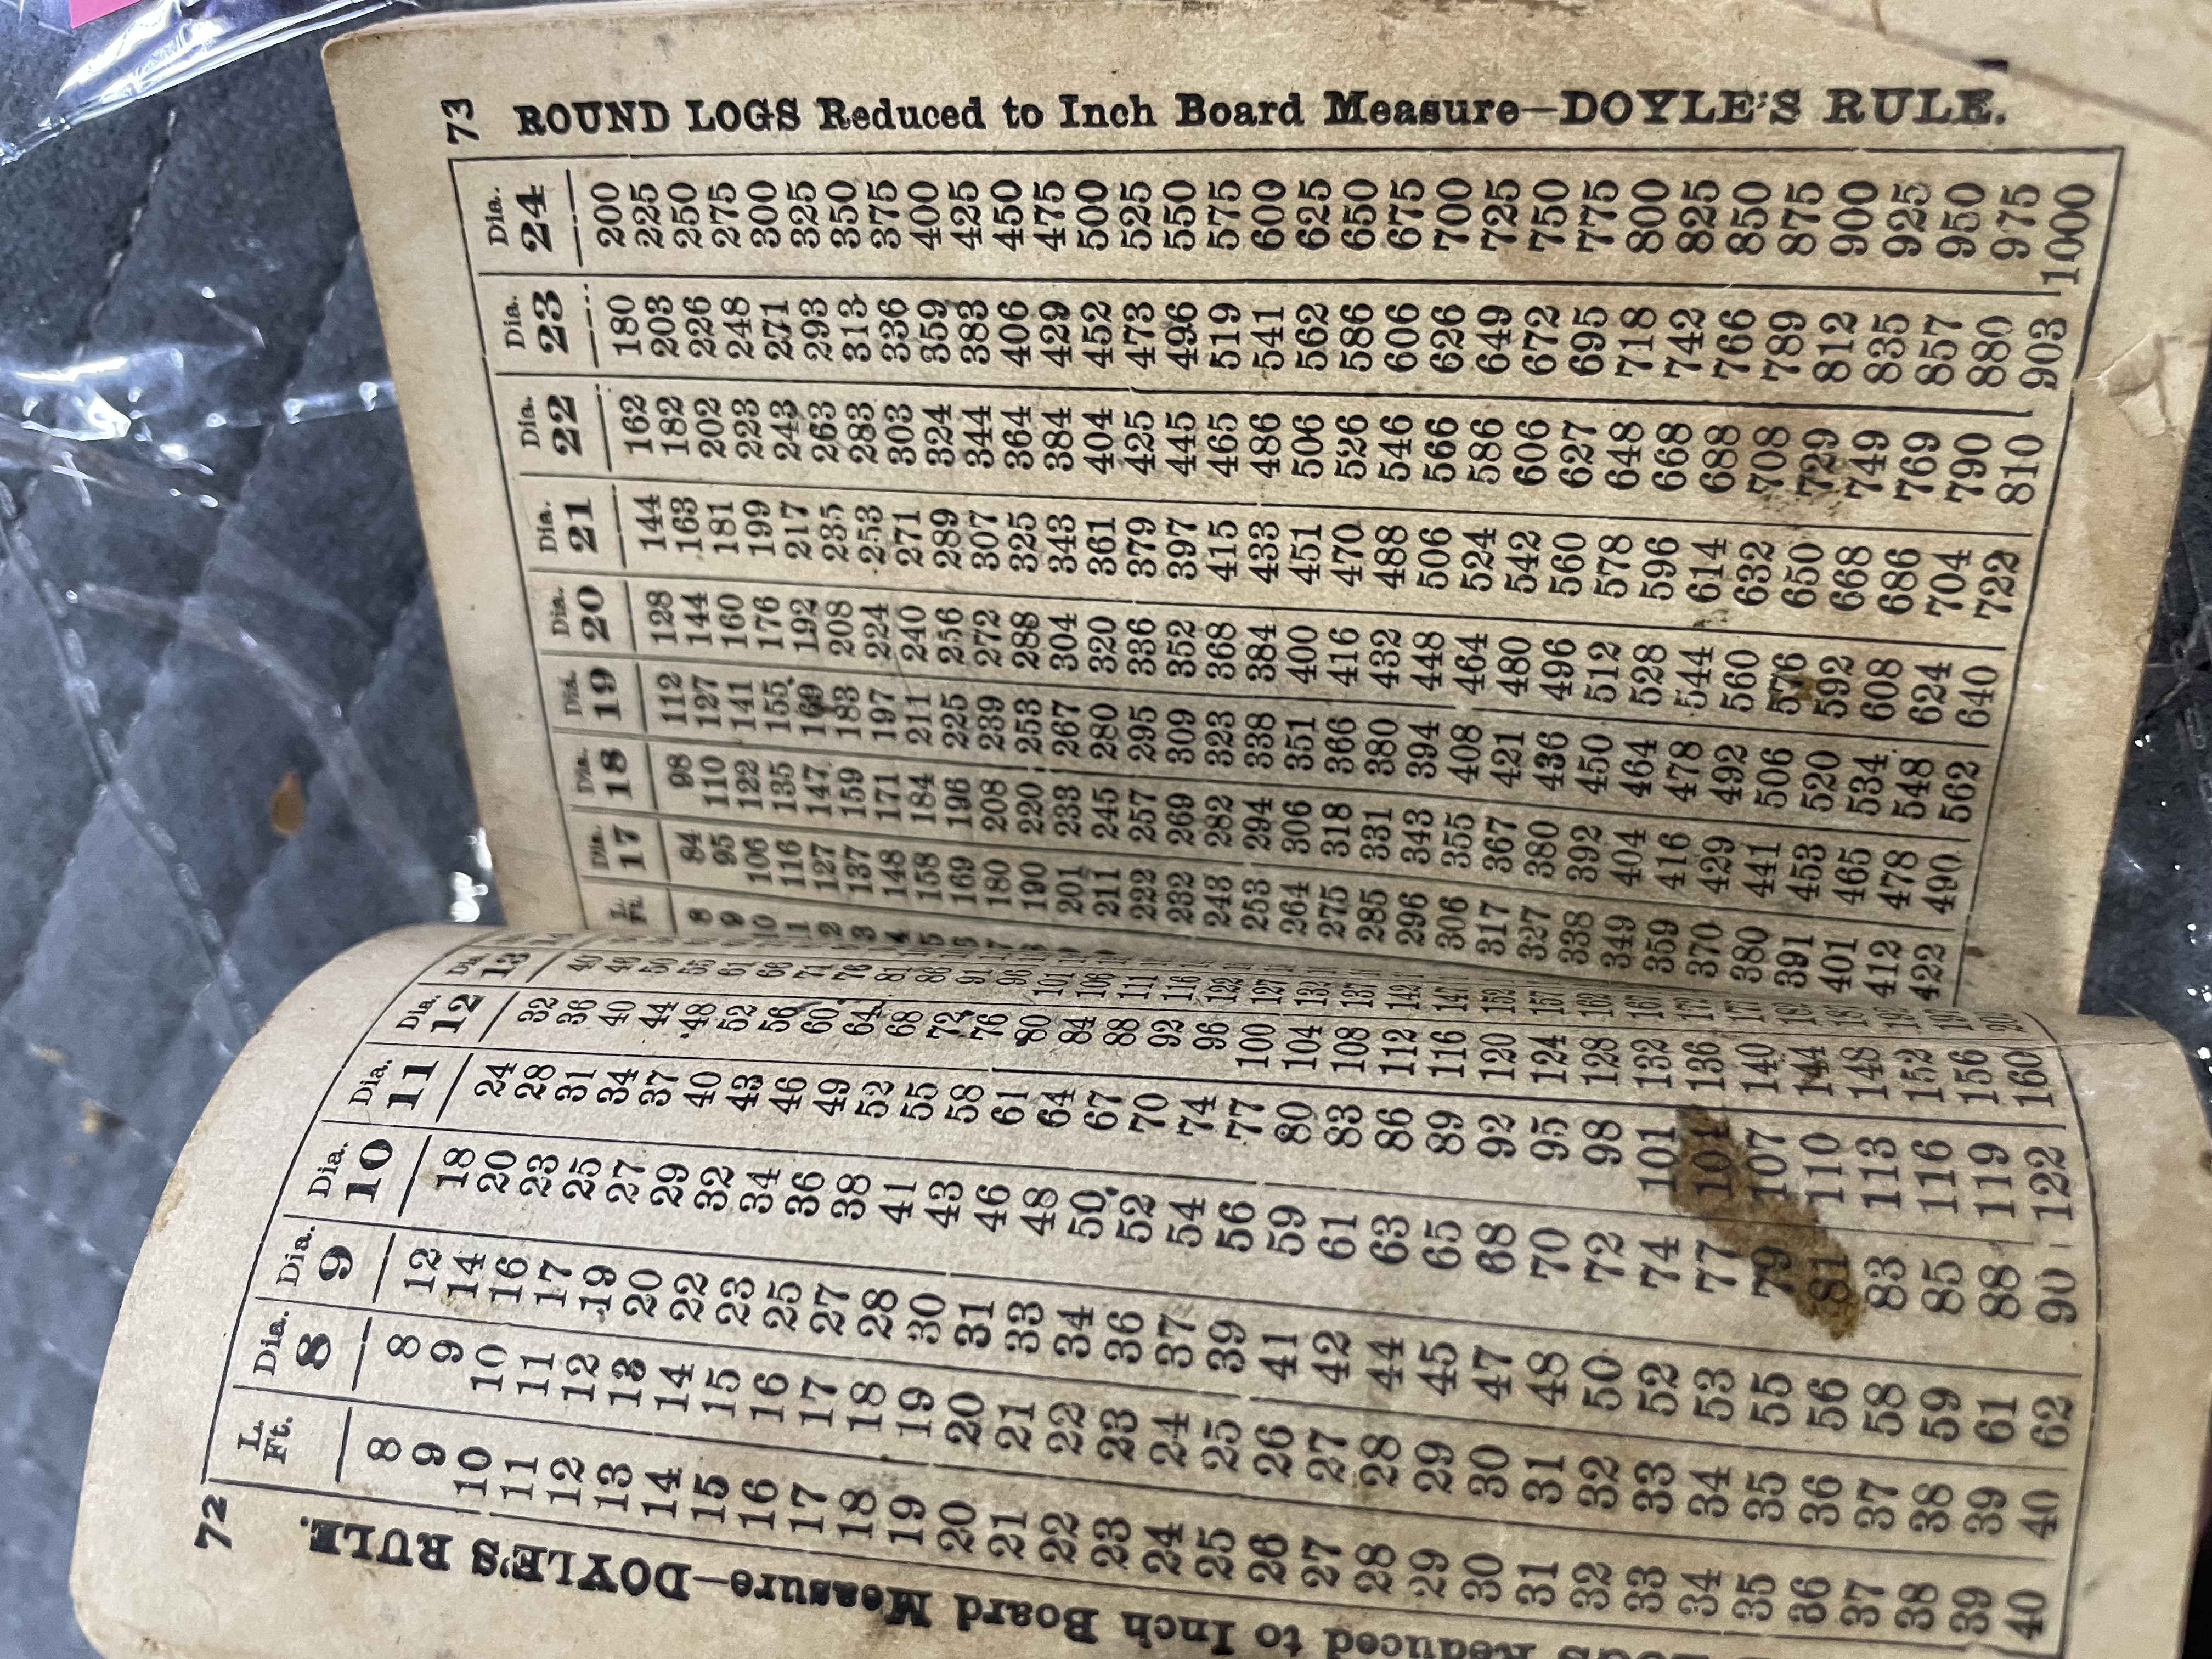 72
Reduced to Inch Board Measure—DOYLE'S RULE.
L. Ft. Dia. 8 Dia. 9 Dia. 10 Dia. 11 Dia. 12 13
8 8 12 18 24 32
9 9 14 20 28 36
10 10 16 23 31 40
11 11 17 25 34 44
12 12 19 27 37 48 61
13 13 20 29 40 52 66
14 14 22 32 43 56 71
15 15 23 34 46 60 76
16 16 25 36 49 64 81
17 17 27 38 52 68 86
18 18 28 41 55 72 91
19 19 30 43 58 76 96
20 20 31 46 61 80 101
21 21 33 48 64 84 106
22 22 34 50 67 88 111
23 23 36 52 70 92 116
24 24 37 54 74 96
25 25 39 56 77 100
26 26 41 59 80 104
27 27 42 61 83 108
28 28 44 63 86 112
29 29 45 65 89 116
30 30 47 68 92 120
31 31 48 70 95 124
32 32 50 72 98 128
33 33 52 74 101 132
34 34 53 77 104 136
35 35 55 79 107 140
36 36 56 81 110 144
37 37 58 83 113 148
38 38 59 85 116 152
39 39 61 88 119 156
40 40 62 90 122 160
73
ROUND LOGS Reduced to Inch Board Measure—DOYLE'S RULE.
L. Ft. Dia. 17 Dia. 18 Dia. 19 Dia. 20 Dia. 21 Dia. 22 Dia. 23 Dia. 24
8 84 98 112 128 144 162 180 200
9 95 110 127 144 163 182 203 225
10 106 122 141 160 181 202 226 250
116 135 155 176 199 223 248 275
127 147 169 192 217 243 271 300
137 159 183 208 235 263 293 325
148 171 197 224 253 283 313 350
158 184 211 240 271 303 336 375
169 196 225 256 289 324 359 400
180 208 239 272 307 344 383 425
190 220 253 288 325 364 406 450
201 233 267 304 343 384 429 475
211 245 280 320 361 404 452 500
222 257 295 336 379 425 473 525
232 269 309 352 397 445 496 550
243 282 323 368 415 465 519 575
253 294 338 384 433 486 541 600
264 306 351 400 451 506 562 625
275 318 366 416 470 526 586 650
285 331 380 432 488 546 606 675
296 343 394 448 506 566 626 700
306 355 408 464 524 586 649 725
317 367 421 480 542 606 672 750
327 380 436 496 560 627 695 775
338 392 450 512 578 648 718 800
349 404 464 528 596 668 742 825
359 416 478 544 614 688 766 850
370 429 492 560 632 708 789 875
380 441 506 576 650 729 812 900
391 453 520 592 668 749 835 925
401 465 534 608 686 769 857 950
412 478 548 624 704 790 880 975
422 490 562 640 722 810 903 1000